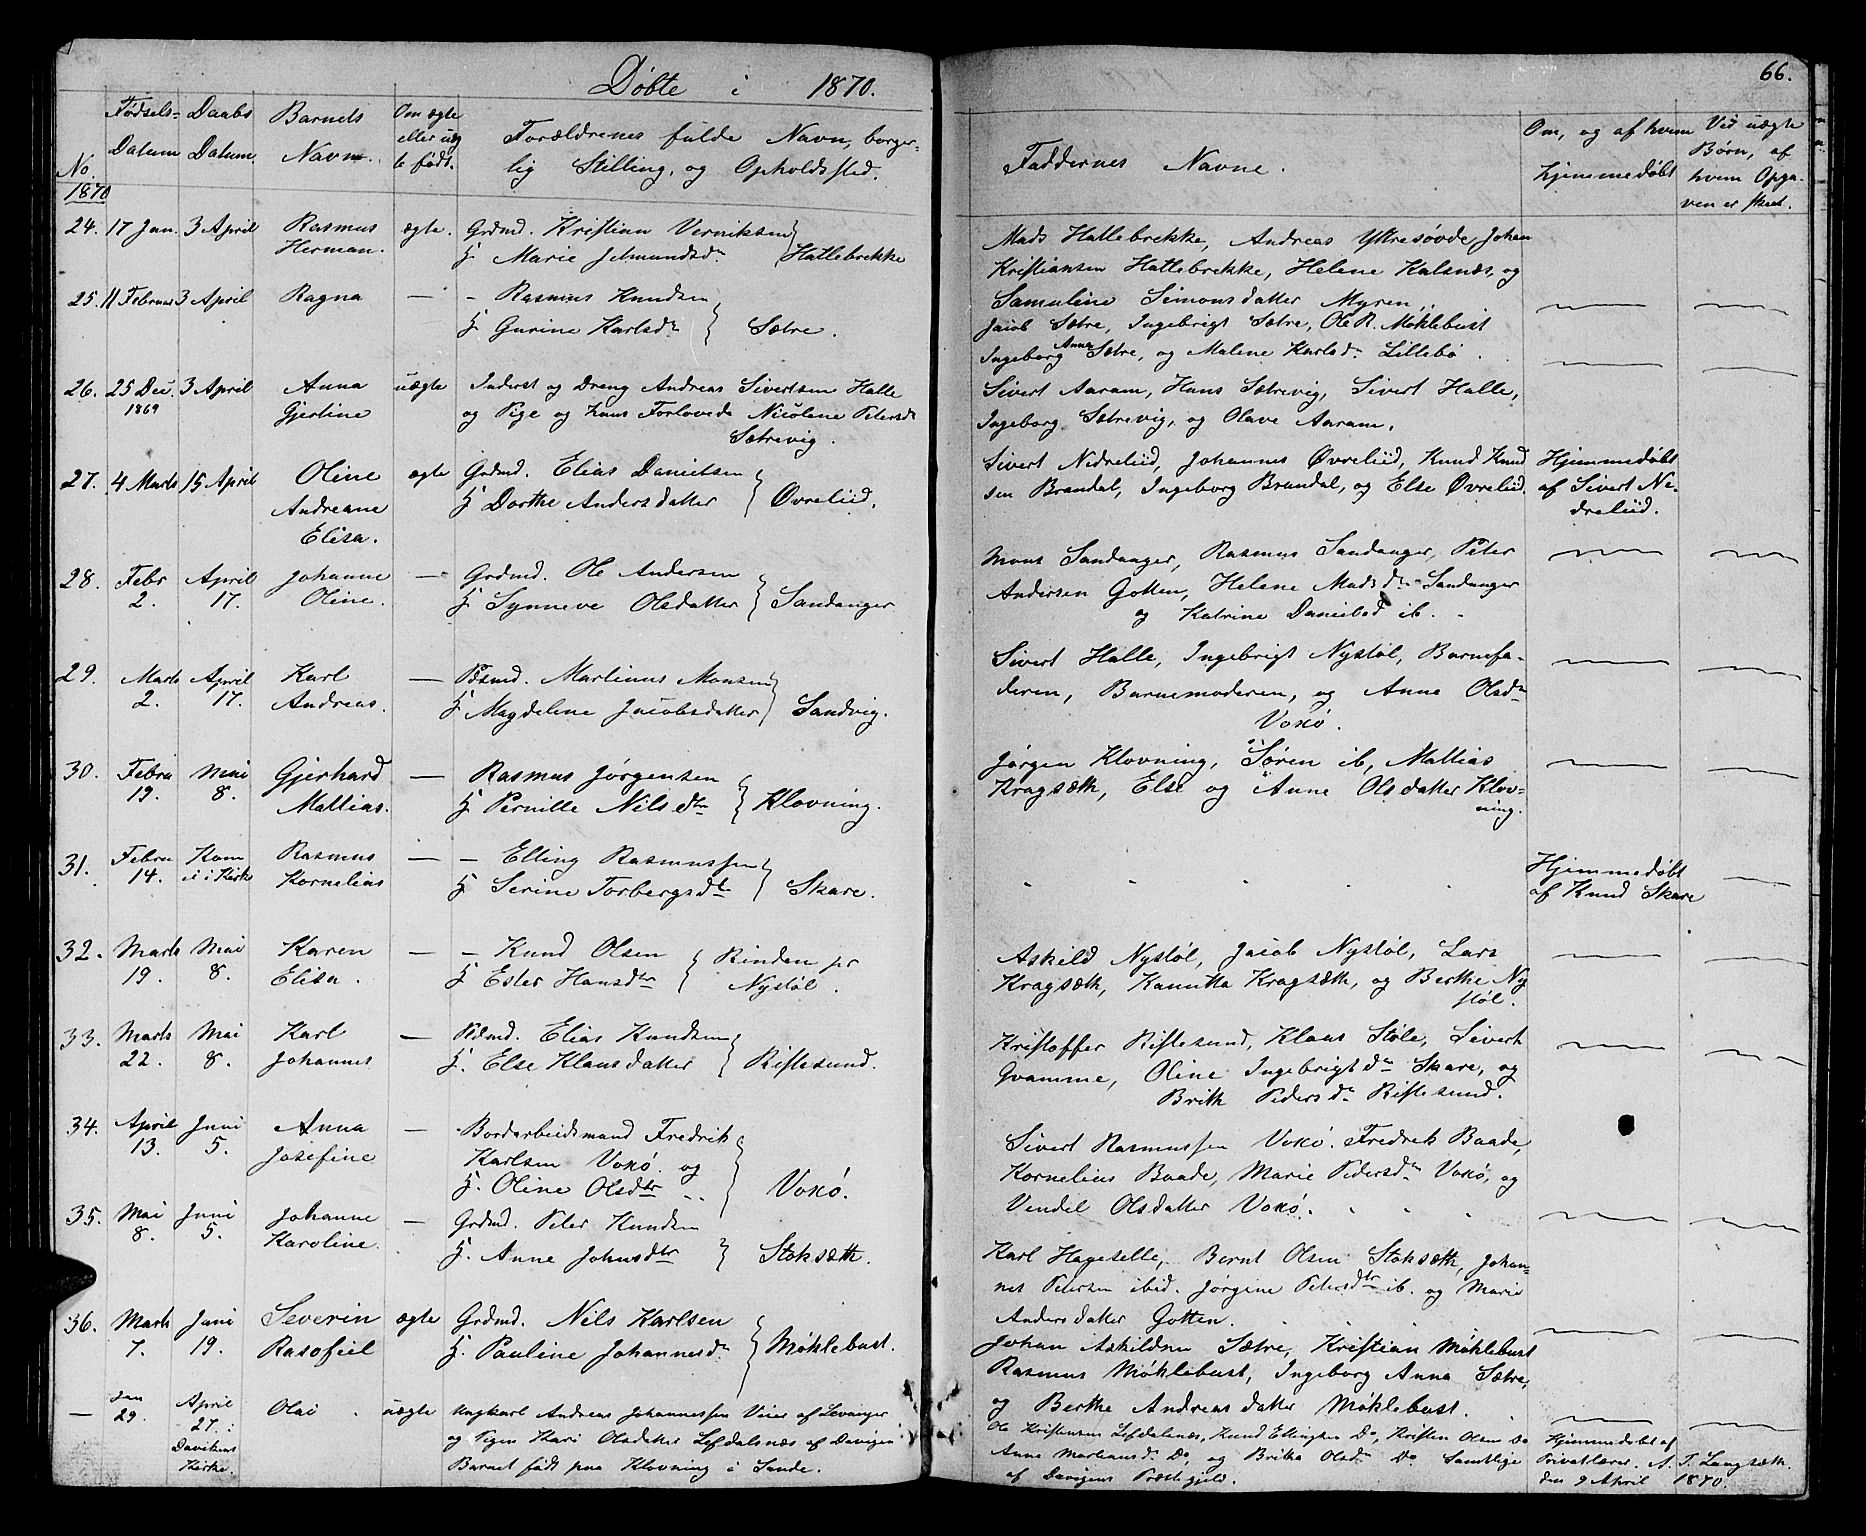 Døbte i 1870.
66.
No.
Fødsels-
Datum
Daabs
Datum
Barnets
Navn.
Om ægte
eller uæg
te født.
Forældrenes fulde Navn, borger-
lig Stilling, og Opholdssted.
Faddernes Navne.
Om, og af hvem
hjemmedøbt
Ved uægte
Børn, af
hvem Opga-
ven er skeet.
1870
24. 17 Jan. 3 April Rasmus ægte. Grdmd. Kristian Verniksen
Herman. H. Marie Hatlebrekke
Mads Hatlebrekke, Andreas Yttresøvde Johan
Kristiansen Hatlebrekke, Helene Kalsnæs, og
Samuline Simonsdatter Myren.
25. 11 Februar 3 April Ragna — - Rasmus Knudsen
H. Gurine Karlsdr Sætre.
Jacob Sætre, Ingebrigt Sætre, Ole R. Møklebust
Ingeborg Anna Sætre, og Malene Karlsdr Lillebø.
26. 25 Dec. 3 April Anna uægte Inderst og Dreng Andreas Sivertsen Halle
1869 Gjertine og Pige og hans Forlovede Nicoline Petersdr
Sætrevig.
Sivert Aaram, Hans Sætrevig, Sivert Halle,
Ingeborg Sætrevig, og Olave Aaram.
27. 4 Marts 15 April Oline ægte Grdmd. Elias Danielsen
Andreane H. Dorthe Andersdatter Øvreliid.
Elisa.
Sivert Nedreliid, Johannes Øvreliid, Knud Knud
sen Brandal, Ingeborg Brandal, og Else Øvreliid.
Hjemmedøbt
af Sivert Ne-
dreliid.
28. Febr April Johanne — Grdmd. Ole Andersen
2. 17. Oline. H. Synneve Olsdatter Sandanger
Mons Sandanger, Rasmus Sandanger, Peter
Andersen Gotten, Helene Madsdr Sandanger
og Katrine ib.
29. Marts April Karl — Pdsmd. Martinus Monsen
2. 17. Andreas. H. Magdelene Jacobsdatter Sandvig.
Sivert Halle, Ingebrigt Nystøl, Barnefa-
deren, Barnemoderen, og Anne Olsdr
Voxø.
30. Febru Mai Gjerhard — Rasmus Jørgensen
19. 8. Mattias. H. Pernille Nilsdtr Klovning.
Jørgen Klovning, Søren ib, Mattias
Kragsæth, Else og Anne Olsdatter Klov-
ning.
31. Febru Kom Rasmus — - Elling Rasmussen
14. ei i Kirke Kornelius H. Serine Torbergsdtr Skare.
Hjemmedøbt
af Knud Skare
32. Marts Mai Karen — - Knud Olsen
19. 8. Elisa. H. Ester Hansdtr Rinden pr
Nystøl.
Askild Nystøl, Jacob Nystøl, Lars
Kragsæth, Kanutta Kragsæth, og Berthe Ny
støl.
33. Marts Mai Karl — Pdsmd. Elias Knudsen
22. 8. Johannes H. Else Klausdatter Riflesund.
Kristoffer Riflesund, Klaus Støle, Sivert
Gvamme, Oline Ingebrigtdr Skare, og
Brith Pedersdr Riflesund.
34. April Juni Anna — Bordarbeidsmand Fredrik
13. 5. Josefine Karlsen Voxø og
H. Oline Olsdtr Voxø.
Sivert Rasmussen Voxø. Fredrek Baade,
Kornelius Baade, Marie Pedersdr Voxø, og
Vendel Olsdatter Voxø.
35. Mai Juni Johanne — Grdmd. Peter Knudsen
8. 5. Karoline. H. Anne Johnsdtr Stoksæth.
Karl Hageselle, Bernt Olsen Stoksæth, Johan-
nes Petersen ibid. Jørgine Petersdtr ib. og Marie
Andersdatter Gotten.
36. Marts Juni Severin ægte Grdmd. Nils Karlsen
7. 19. Rasofiel H. Pauline Johannesdr Møklebust.
Johan Askildsen Sætre, Kristian Møklebust
Rasmus Møklebust, Ingeborg Anna Sætre,
og Berthe Andreasdatter Møklebust.
— Jan April Olai uægte Ungkarl Andreas Johannessen Veier af Levanger
29. 27. i og Pigen Kari Olsdatter Lefdalsnæs af Davigen
Davikens Barnet født paa Klovning i Sande.
Kirke.
Ole Kristensen Lefdalsnæs, Knud Ellingsen Do, Kristen Olsen Do
Anne Do, og Britha Olsdr Do Samtlige
af Davigens Præstegjeld.
Hjemmedøbt af
Privatlærer. A. T. Langsæth.
den 9 April 1870.